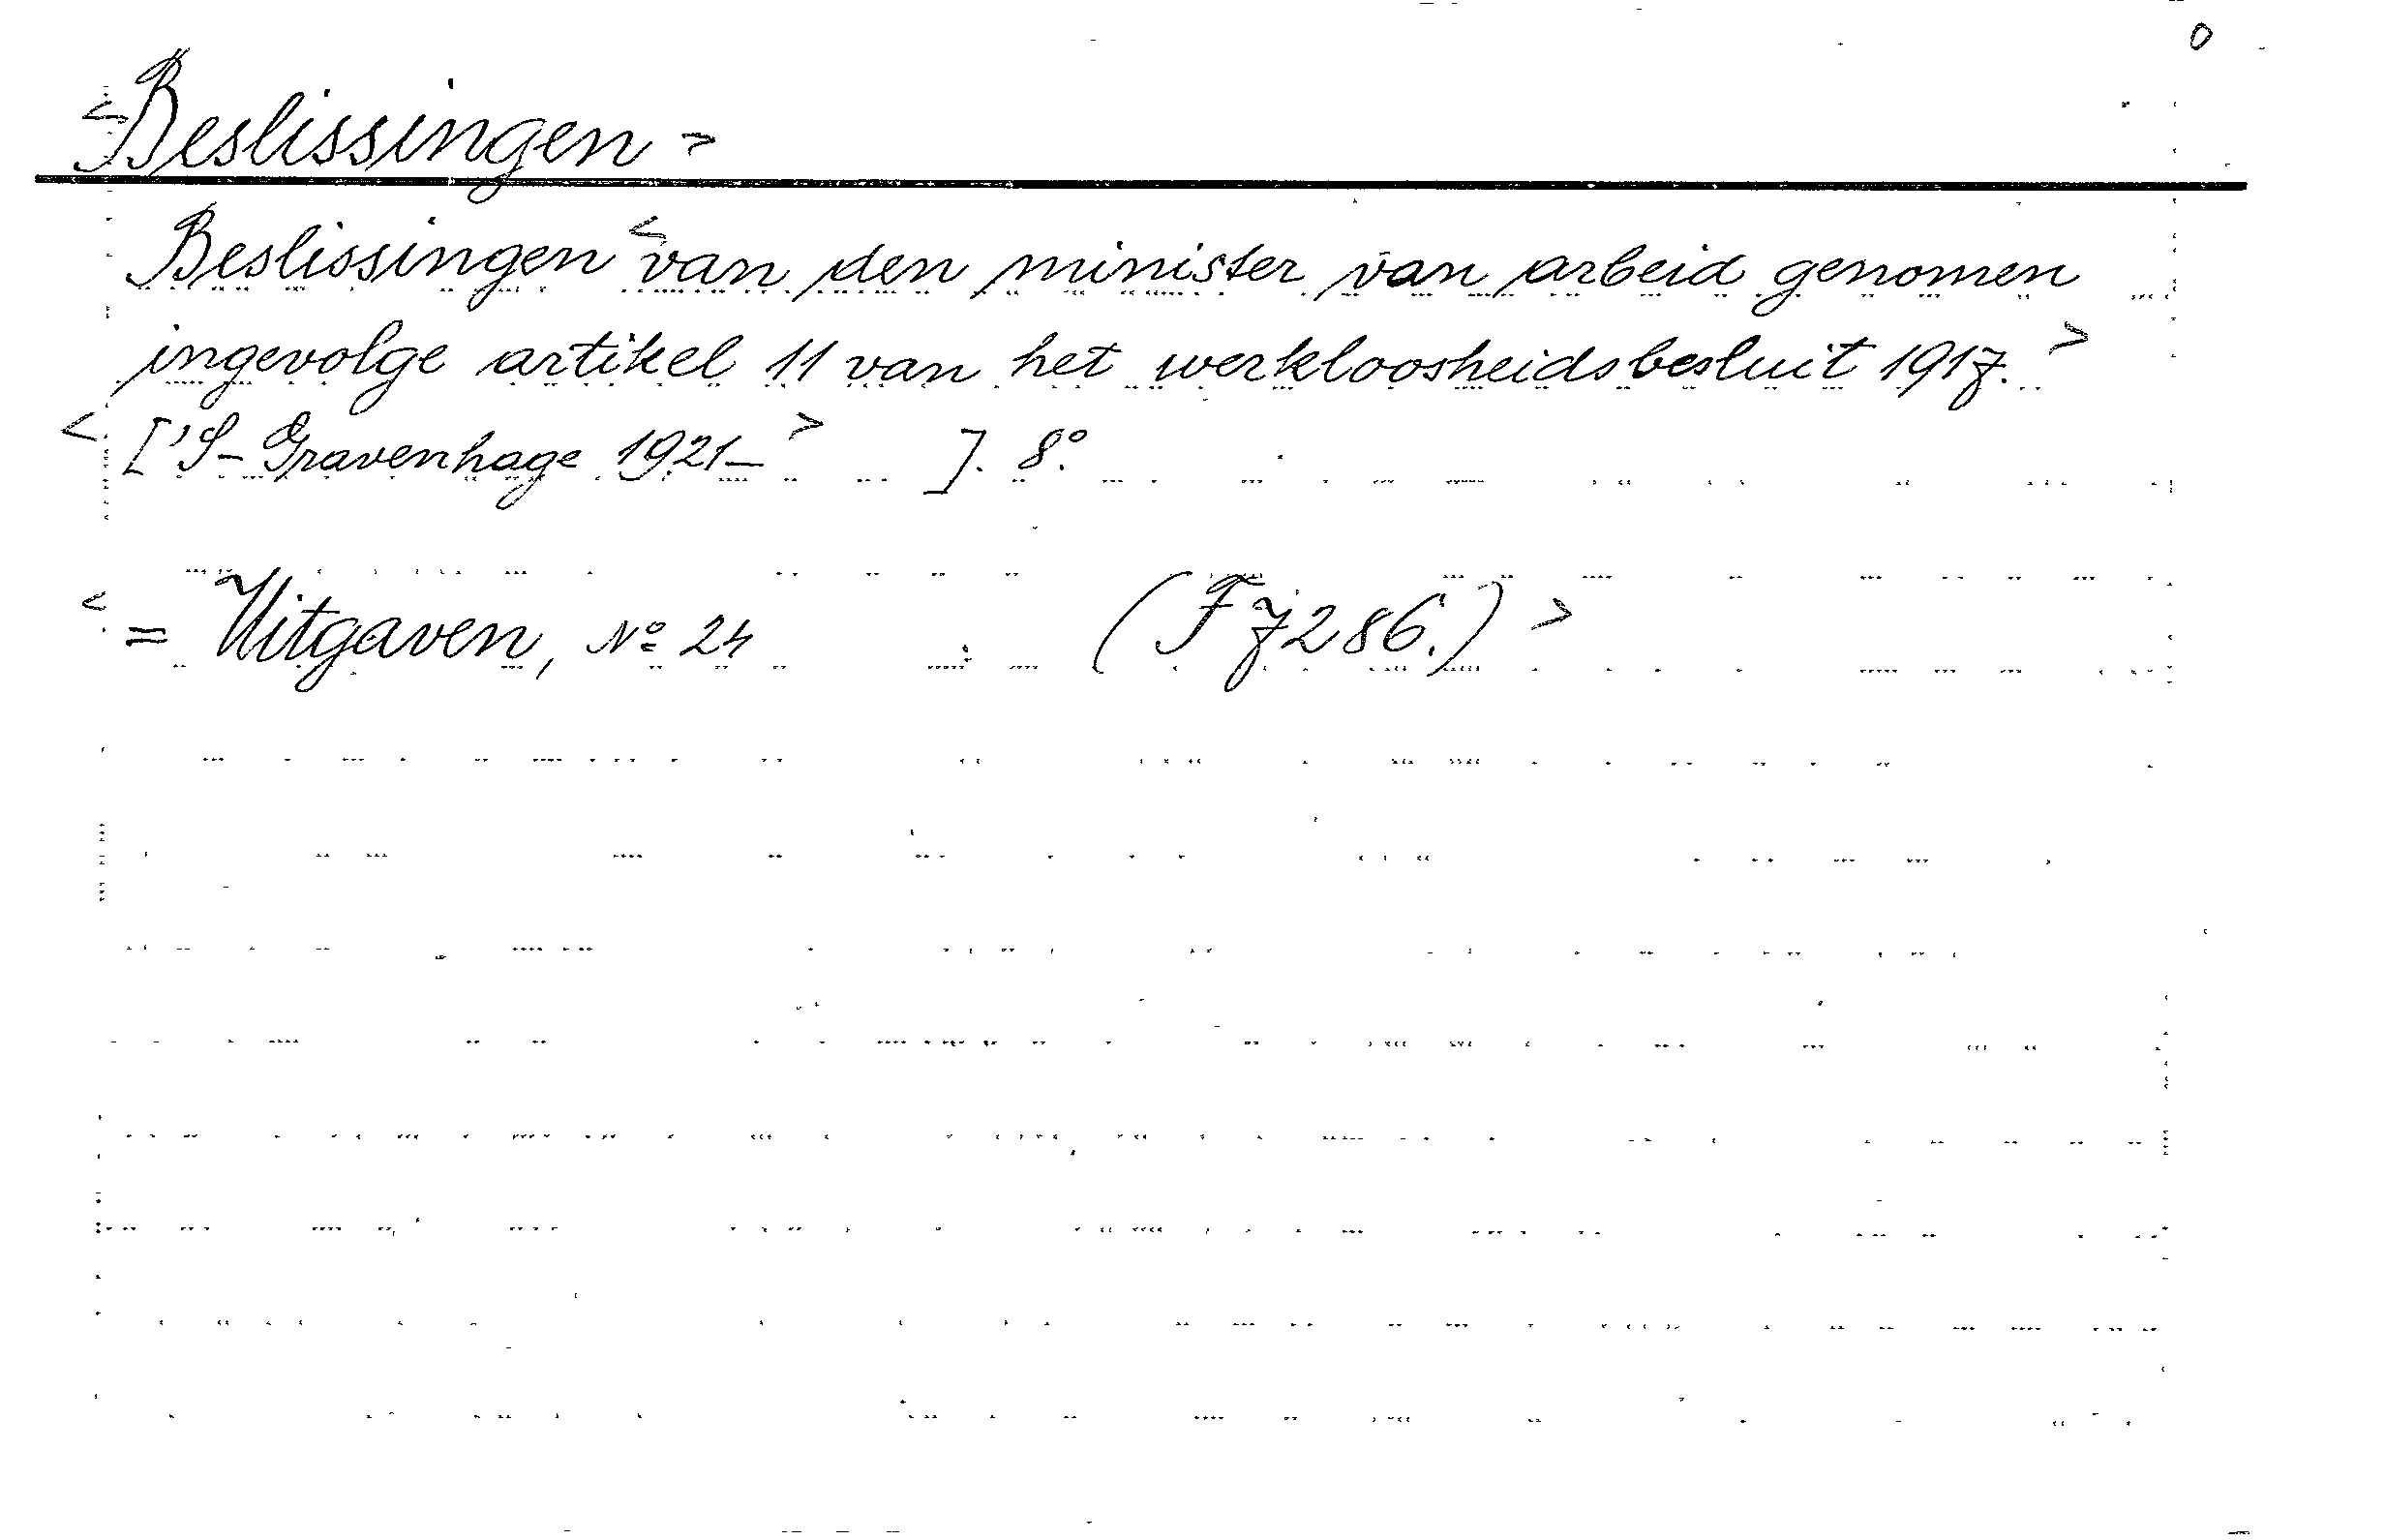 <Beslissingen>
Beslissingen <van den minister van arbeid genomen
ingevolge artikel 11 van het werkloosheidsbesluit 1917.>
<['S-Gravenhage 1921- > ]. 8°.
<= Uitgaven, No 24 (F 7286.)>